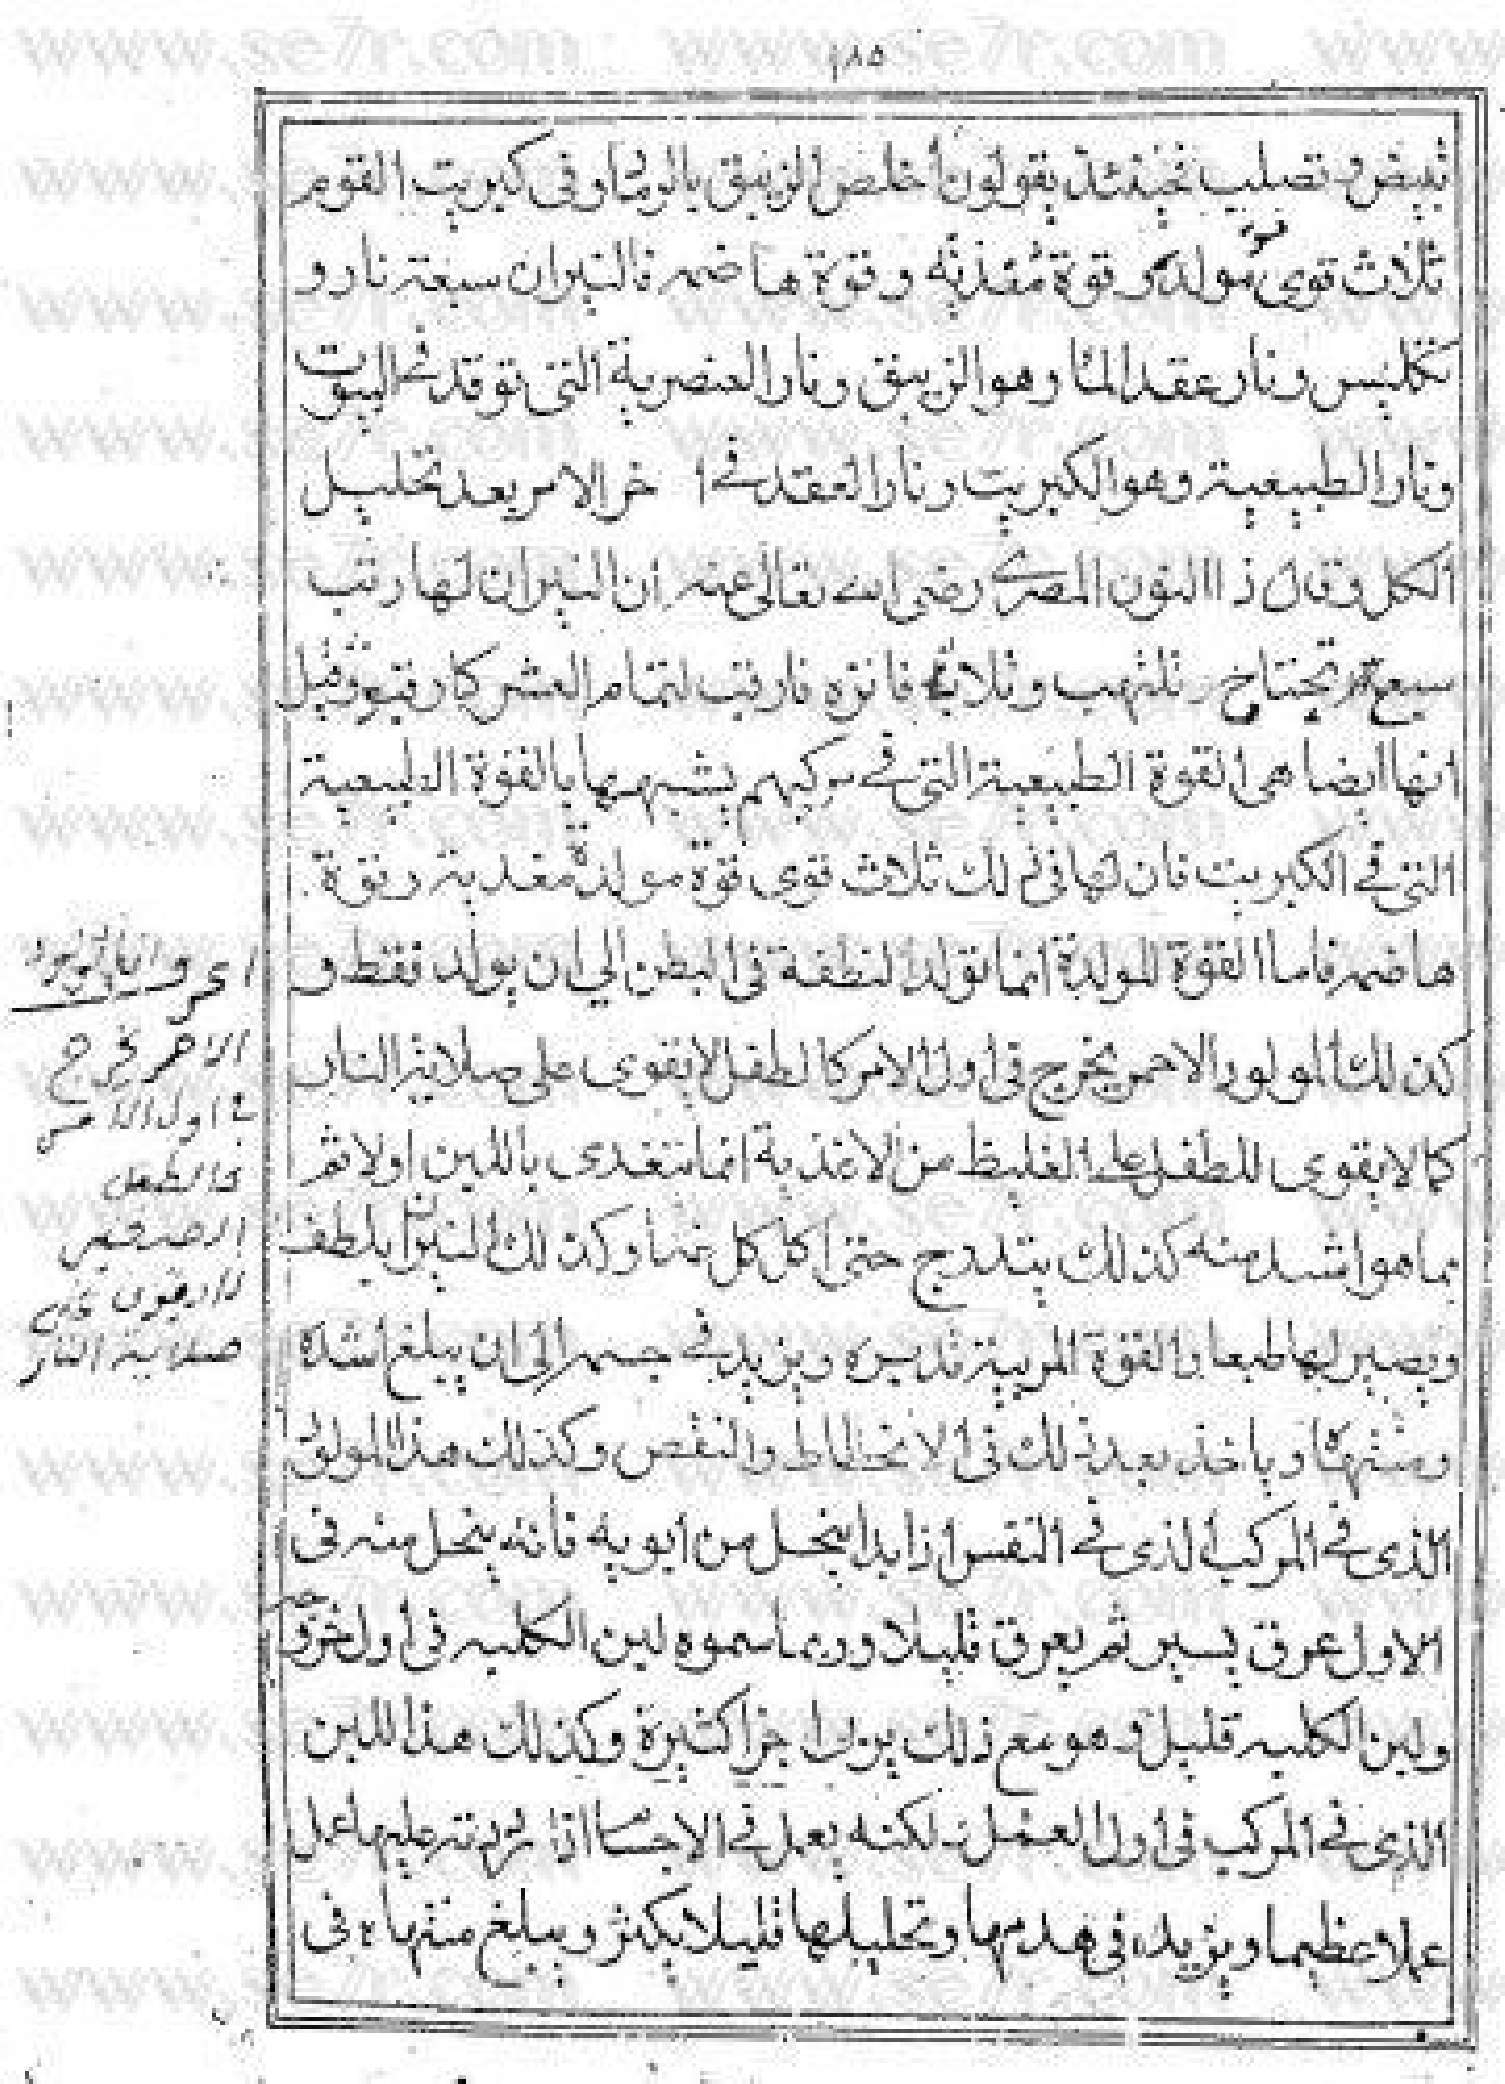 ١٨٥
تبيض وتصليب فحينئذ يقولون اخلص الزيبق بالرماد وفى كبريت القوم
ثلاث قوى قوة مولده وقوة مغذيه وقوة هاضمه فالنيران سبعة نار و
تكليس ونار عقد الماء وهو الزيبق ونار العنصرية التى توقد فى البيوت
ونار الطبيعية وهو الكبريت ونار العقد فى ا خر الامر بعد تحليل
الكل وقال ذا النون المصرى رضى الله تعالى عنه ان النيران لها رتب
سبعة تحتاج تلتهب وثلاثة نار لتمام العشر وقيل
انها ايضا هى القوة الطبيعية التى فى مركبهم يشبهها بالقوة الطبيعية
التى فى الكبريت فان لها فى ذلك ثلاث قوى قوة مولدة مغدية وقوة
هاضمه فاما القوة المولدة انما تولد النطفة فى البطن الي ان يولد فقط و
كذلك المولود الاحمر يخرج فى اول الامر كالطفل لا يقوى على صلابة النار
كما لا يقوى للطفل على الغليظ من الاغذية انما يتغدى باللبن اولا ثم
بما هو اشد منه كذلك يتدرج حتى اكل كل غذا وكذلك النيران يلطف
ويصير لها طبعا والقوة المربية تدبره ويزيد فى جسمه الى ان يبلغ اشده
ومنتهاه وياخذ بعد ذلك فى الانحطاط والنقص وكذلك هذا المولود
الذى فى المركب الذى فى النفس اذا بدا ينحل من ابويه فانه ينحل منه فى
الاول عرق يسير ثم يعرق قليلا وربما سموه لبن الكلبه فى اول
ولبن الكلبه قليل وهو مع ذلك جرا كثيرة وكذلك هذا اللبن
الذى فى المركب فى اول العمل لكنه يعمل فى الاجساد اذا عليها عمل
عملا عظيما ويزيد فى هدمها وتحليلها قليلا يكثر ويبلغ منتهاه فى
الاحمر يخرج
فى اول الامر
كالطفل
الصغير
لا يقوى على
صلابة النار